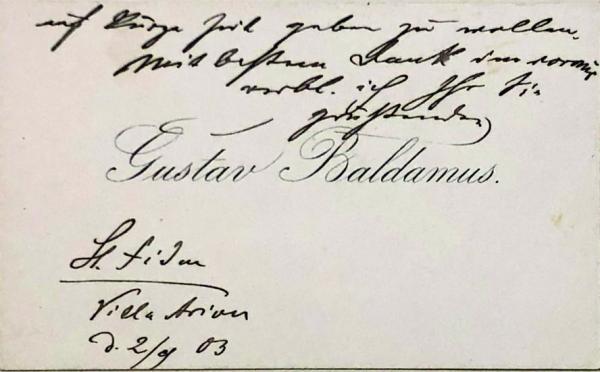 auf kurze Zeit geben zu wollen.
Mit bestem Dank im voraus
verbl. ich Ihr Sie
grüssender
Gustav Baldamus.
St. Fiden
Villa Arion
d. 2/9 03